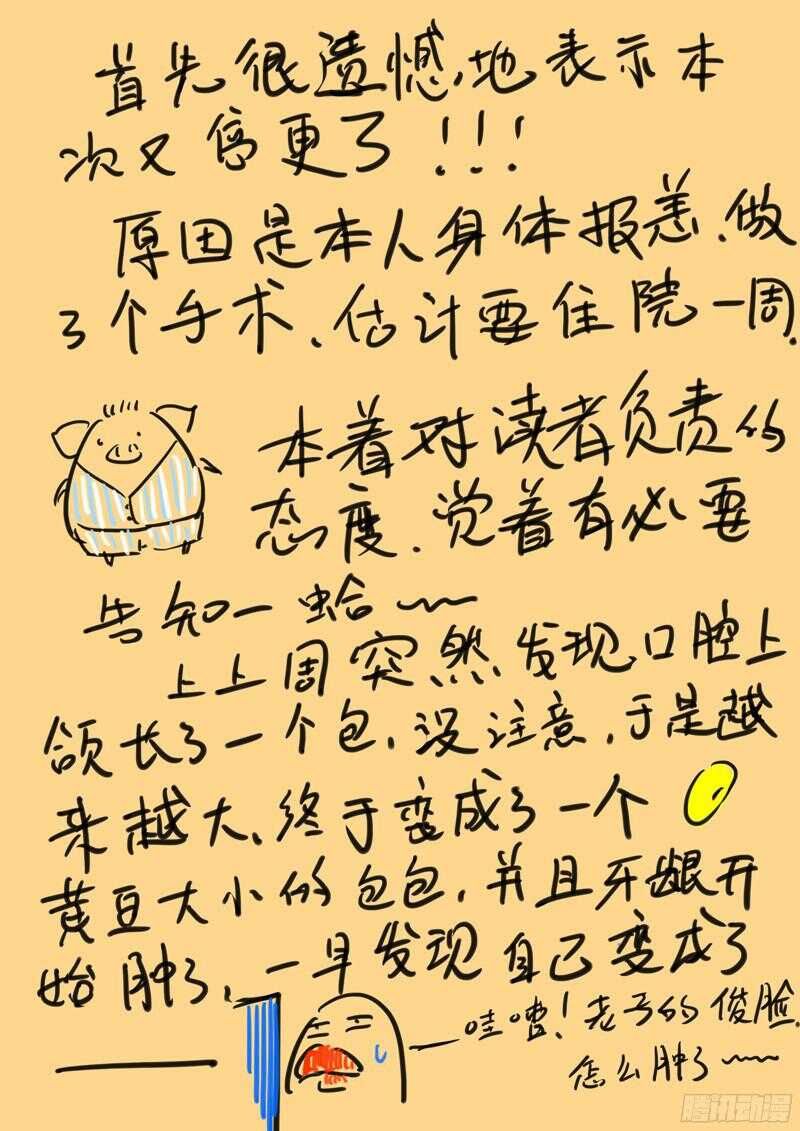 首先很遗憾,地表示本
次又停更了!!!
原因是本人身体报恙.做
了个手术、估计要住院一周.
本着对读者负责的
态度.觉着有必要
告知一蛤~~
上上周突然发现口腔上
颌长了一个包.没注意.于是越
来越大.终于变成了一个
黄豆大小的包包.并且牙龈开
始肿了.一早发现自己变成了
——
哇嘈!老子的俊脸.
怎么肿了~~
腾讯动漫